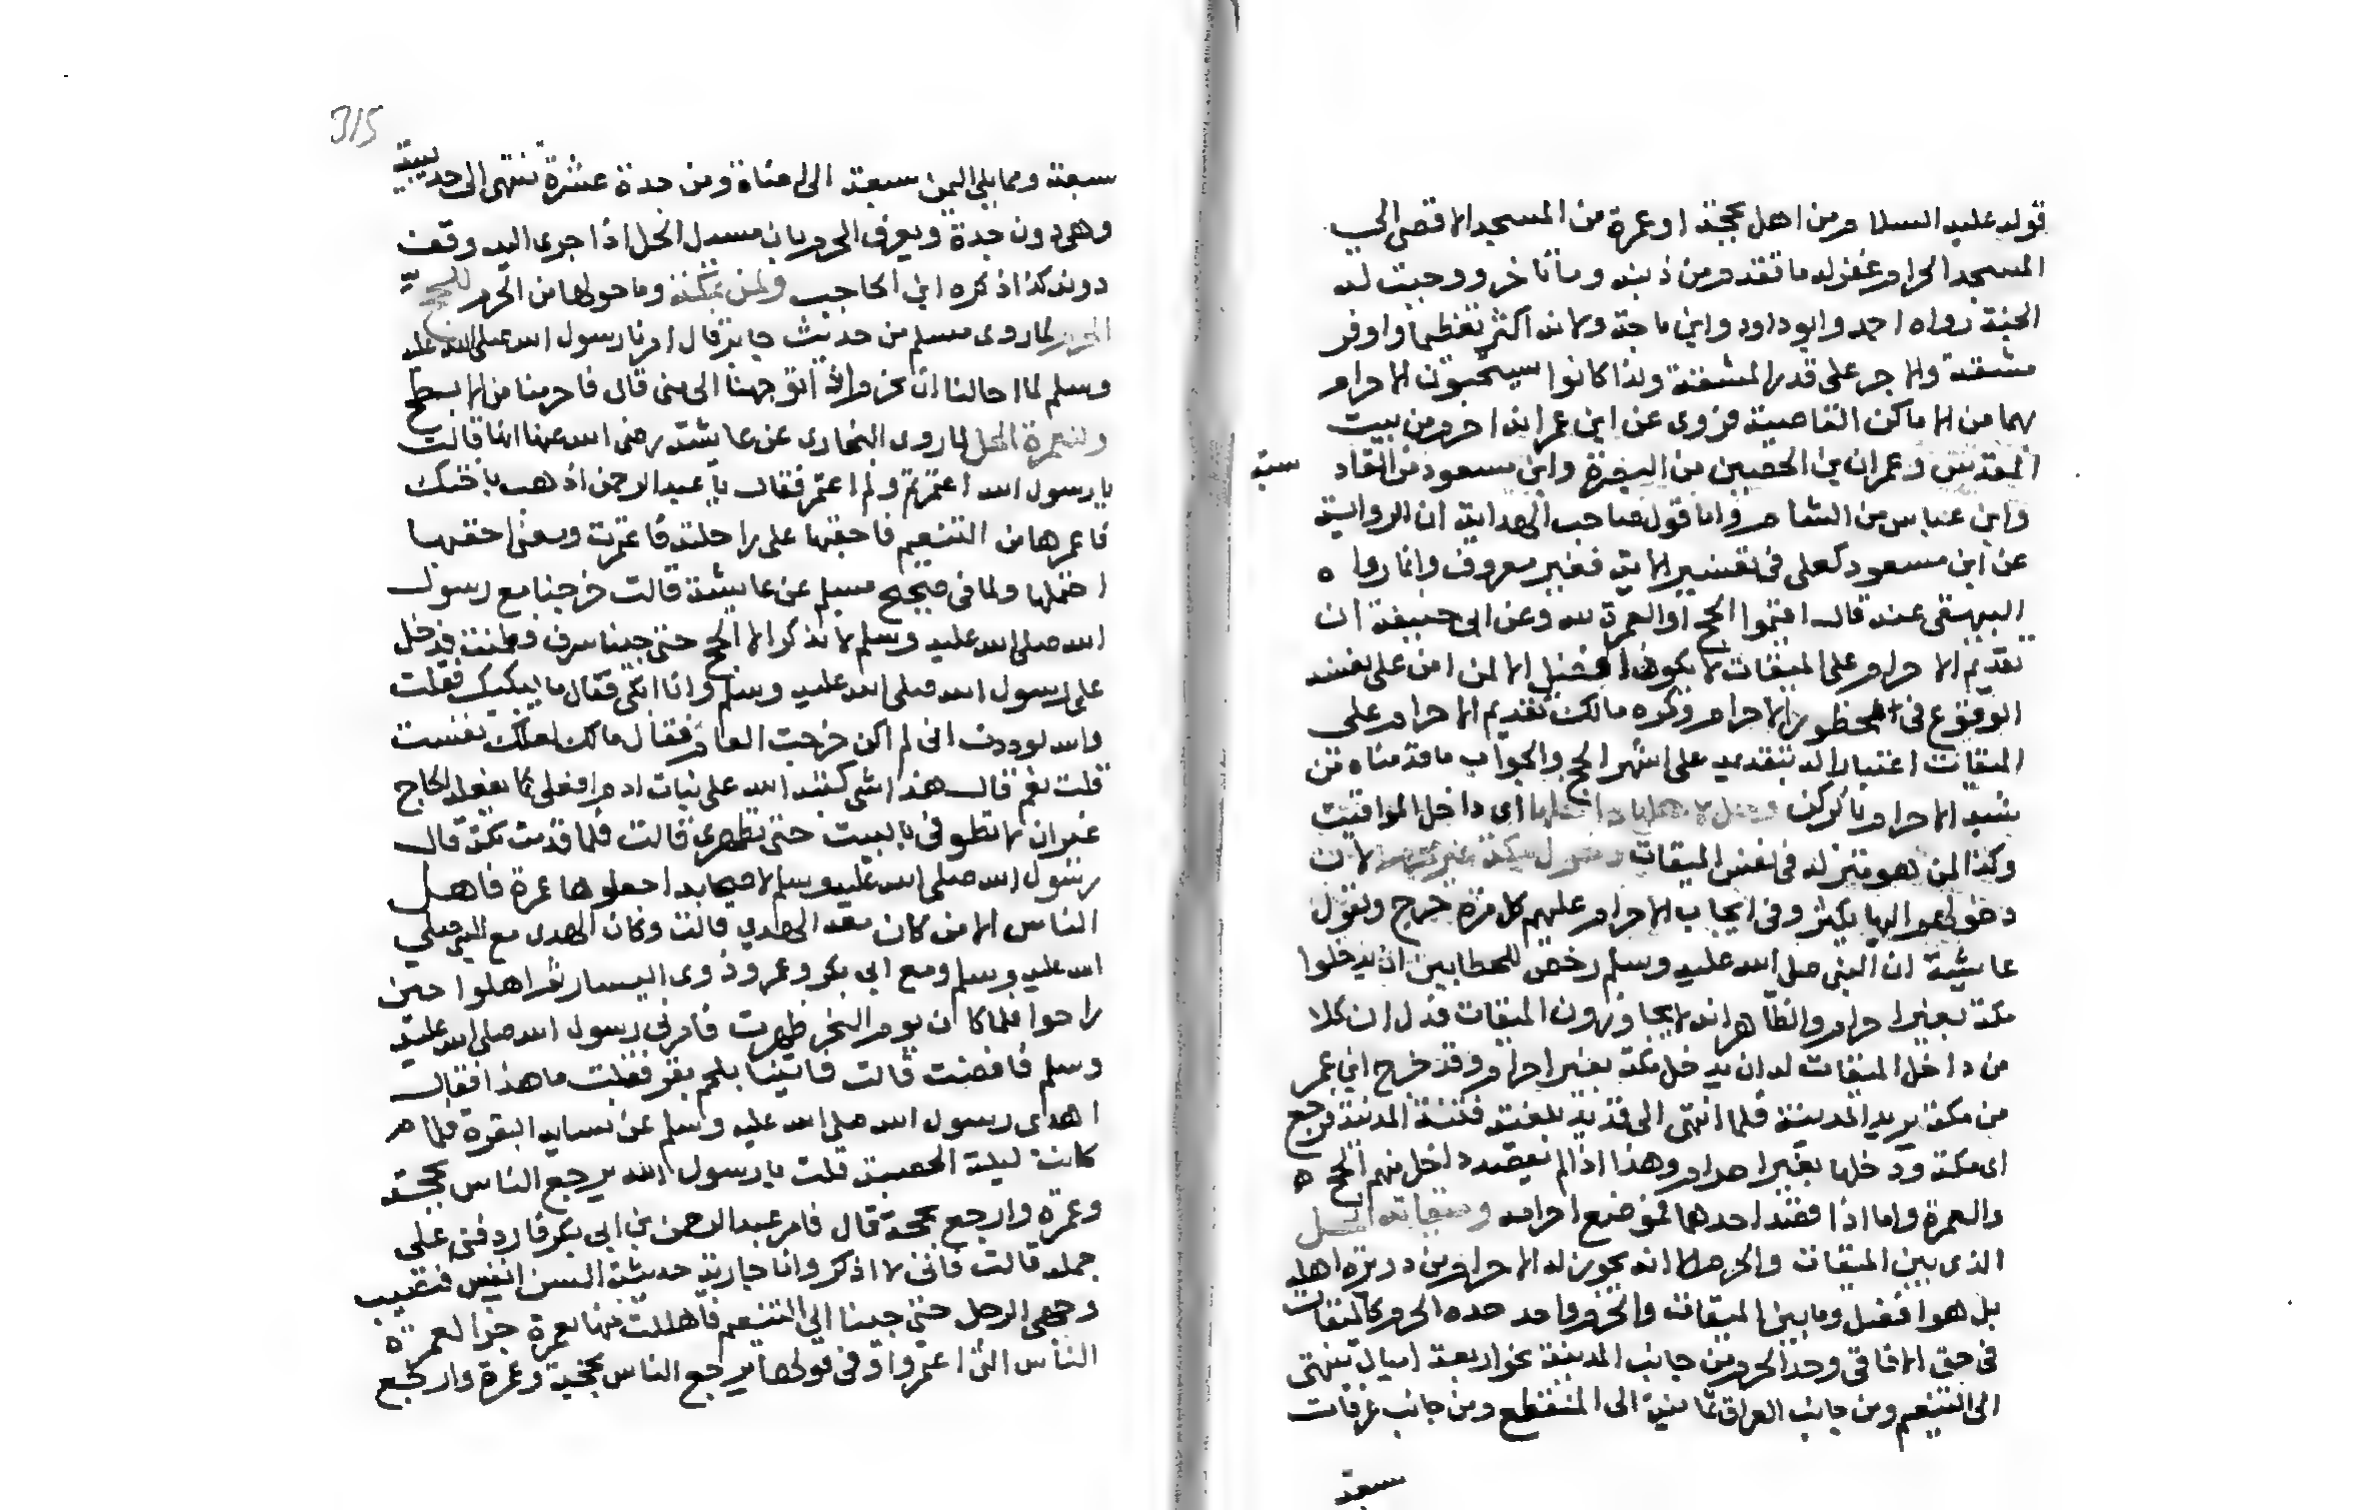 قوله عليه السلام من اهل بحجة او عمرة من المسجد الاقصى الى
المسجد الحرام غفر له ما تقدم من ذنبه وما تاخر ووجبت له
الجنة رواه احمد وابو داود وابن ماجة ولانه اكثر تعظيما واوفر
مشقة والاجر على قدر المشقة ولذا كانوا يستحبون الاحرام
بهما من الاماكن القاصية فروى عن ابن عمر انه احرم من بيت
المقدس وعمران بن الحصين من البصرة وابن مسعود من القاد
سية
وابن عباس من الشام واما قول صاحب الهداية ان الرواية
عن ابن مسعود كعلى فى تفسير الاية فغير معروف وانما رواه
البيهقى عنه قال اتموا الحج والعمرة لله وعن ابى حنيفة ان
تقديم الاحرام على الميقات لا يكون افضل الا لمن امن على نفسه
الوقوع فى المحظور الاحرام وكره مالك تقديم الاحرام على
الميقات اعتبارا له بتقديمه على اشهر الحج والجواب ما قدمناه من
شبه الاحرام بالركن وحل لاهل داخلها اى داخل المواقيت
وكذا لمن هو منزله فى نفس الميقات دخول مكة غير محرم لان
دخولهم اليها يكثر وفى ايجاب الاحرام عليهم كل مرة حرج ونقول
عايشة ان النبى صلى الله عليه وسلم رخص للحطابين ان يدخلوا
مكة بغير احرام والظاهر انه لا يجاوزون الميقات فدل ان كلا
من داخل الميقات له ان يدخل مكة بغير احرام وقد خرج ابن عمر
من مكة يريد المدينة فلما انتهى الى قديد بلغته فتنة المدينة فرجع
اى مكة ودخلها بغير احرام وهذا اذا لم يقصد داخل منهم الحج
والعمرة واما اذا قصد احدهما فموضع احرامه وميقاته الحل
الذى بين الميقات والحرم الا انه يجوز له الاحرام من دويرة اهله
بل هو افضل وما بين الميقات والحرم واحد حده الحرم كالميقات
فى حق الافاقى وحد الحرم من جانب المدينة نحو اربعة اميال تنتهى
الى التنعيم ومن جانب العراق ثمانية الى المنقطع ومن جانب عرفات
سبعة
315
سبعة ومما يلى اليمن سبعة الى اضاة ومن جدة عشرة تنتهى الى حديبية
وهى دون جدة ويعرف الحرم بان مسيل الحل اذا جرى اليه وقف
دونه كذا ذكره ابن الحاجب ولمن بمكة وما حولها من الحرم للحج
الحرم لما روى مسلم من حديث جابر قال امرنا رسول الله صلى الله عليه
وسلم لما احللنا ان نحرم اذا توجهنا الى منى قال فاحرمنا من الابطح
وللعمرة الحل لما روى البخارى عن عايشة رضى الله عنها انها قالت
يا رسول الله اعتمرتم ولم اعتمر فقال يا عبد الرحمن اذهب باختك
فاعمرها من التنعيم فاحقبها على راحلته فاعتمرت ومعنى احقبها
احملها ولما فى صحيح مسلم عن عايشة قالت خرجنا مع رسول
الله صلى الله عليه وسلم لا نذكر الا الحج حتى جينا سرف فطمثت فدخل
على رسول الله صلى الله عليه وسلم وانا ابكى فقال ما يبكيك فقلت
والله لوددت انى لم اكن خرجت العام فقال مالك لعلك نفست
قلت نعم قال هذا شى كتبه الله على بنات ادم افعلى كما يفعل الحاج
غير ان لا تطوفى بالبيت حتى تطهرى قالت فلما قدمت مكة قال
رسول الله صلى الله عليه وسلم لاصحابه اجعلوها عمرة فاهل
الناس الا من كان معه الهدي قالت وكان الهدى مع النبى صلى
الله عليه وسلم ومع ابى بكر وعمر وذوى اليسار ثم اهلوا حين
راحوا فلما كان يوم النحر طهرت فامرنى رسول الله صلى الله عليه
وسلم فافضت قالت فاتينا بلحم بقر فقلت ما هذا فقال
اهدى رسول الله صلى الله عليه وسلم عن نسايه البقرة فلما
كانت ليلة الحصبة قلت يا رسول الله يرجع الناس بحجة
وعمرة وارجع بحجة قال فامر عبد الرحمن بن ابى بكر فاردفنى على
جمله قالت فانى لا اذكر وانا جارية حديثة السن انعس فتصيب
وجهى الرحل حتى جينا الى التنعيم فاهللت منها بعمرة جزا لعمرة
الناس التى اعتمروا وفى قولها يرجع الناس بحجة وعمرة وارجع